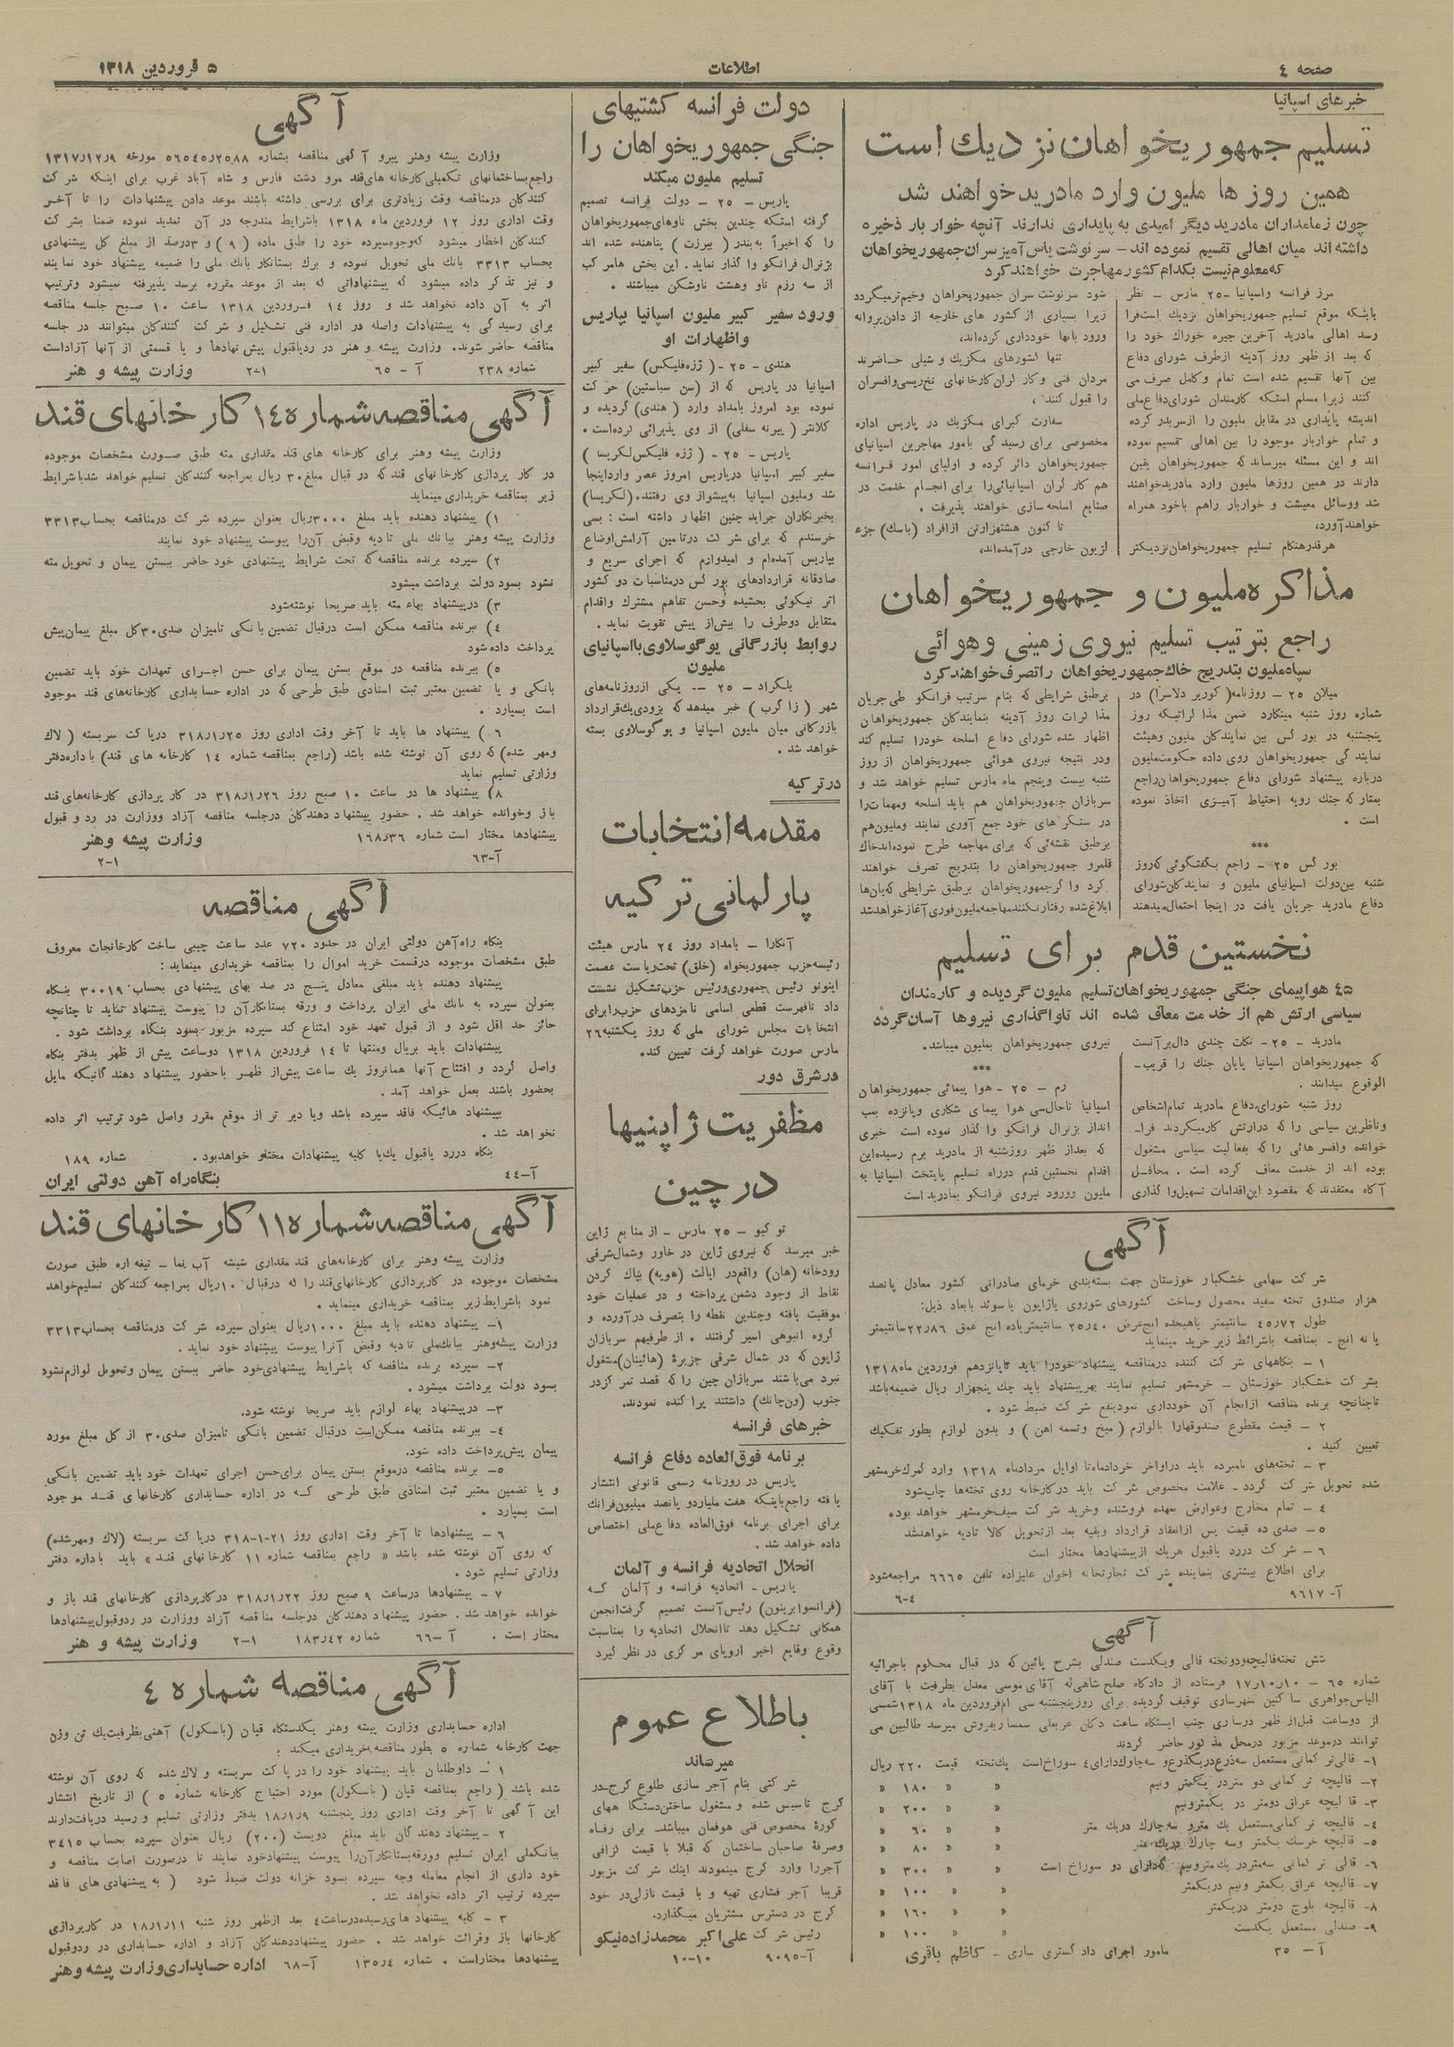 صفحه ٤
اطلاعات
٥ فروردین ١٣١٨
خبرهای اسپانیا
تسلیم جمهوریخواهان نزدیك است
همین روز ها ملیون وارد مادرید خواهند شد
چون زمامداران مادرید دیگر امیدی به پایداری ندارند آنچه خوار بار ذخیره
داشته اند میان اهالی تقسیم نموده اند – سرنوشت یاس آمیز سران جمهوریخواهان
که معلوم نیست بکدام کشور مهاجرت خواهند کرد
مرز فرانسه واسپانیا -٢٥ مارس – نظر
باینکه موقع تسلیم جمهوریخواهان نزدیك است فرا
رسد اهالی مادرید آخرین جیره خوراك خود را
که بعد از ظهر روز آدینه از طرف شورای دفاع
بین آنها تقسیم شده است تمام و کامل صرف می
کنند زیرا مسلم استکه کارمندان شورای دفاع ملی
اندیشه پایداری در مقابل ملیون را از سر بدر کرده
و تمام خواربار موجود را بین اهالی تقسیم نموده
اند و این مسئله میرساند که جمهوریخواهان یقین
دارند در همین روزها ملیون وارد مادرید خواهند
شد ووسائل معیشت و خواربار راهم باخود همراه
خواهند آورد.
هرقدر هنگام تسلیم جمهوریخواهان نزدیکتر
شود سرنوشت سران جمهوریخواهان وخیم تر میگردد
زیرا بسیاری از کشور های خارجه از دادن پروانه
ورود بآنها خودداری کرده اند،
تنها کشورهای مکزیك و شیلی حاضرند
مردان فنی و کارگران کارخانهای نخ ریسی وافسران
را قبول کنند.
سفارت کبرای مکزیك در پاریس اداره
مخصوصی برای رسیدگی بامور مهاجرین اسپانیای
جمهوریخواهان دائر کرده و اولیای امور فرانسه
هم کارگران اسپانیائی را برای انجام خدمت در
صنایع اسلحه سازی خواهند پذیرفت.
تا کنون هشتهزارتن از افراد (باسك) جزء
لژیون خارجی در آمده اند،
مذاکره ملیون و جمهوریخواهان
راجع بترتیب تسلیم نیروی زمینی وهوائی
سپاه ملیون بتدریج خاك جمهوریخواهان را تصرف خواهند کرد
میلان ٢٥ – روزنامه (کوریر دلاسرا) در
شماره روز شنبه مینگارد ضمن مذاکراتیکه روز
پنجشنبه در بورگس بین نمایندگان ملیون وهیئت
نمایندگی جمهوریخواهان روی داده حکومت ملیون
درباره پیشنهاد شورای دفاع جمهوریخواهان راجع
بمتارکه جنك رویه احتیاط آمیزی اتخاذ نموده
است.
***
بورگس ٢٥ – راجع بگفتگوئی که روز
شنبه بین دولت اسپانیای ملیون و نمایندگان شورای
دفاع مادرید جریان یافت در اینجا احتمال میدهند
برطبق شرایطی که بنام سرتیب فرانکو طی جریان
مذاکرات روز آدینه بنمایندگان جمهوریخواهان
اظهار شده شورای دفاع اسلحه خودرا تسلیم کند
ودر نتیجه نیروی هوائی جمهوریخواهان از روز
شنبه بیست وپنجم ماه مارس تسلیم خواهد شد و
سربازان جمهوریخواهان هم باید اسلحه ومهمات را
در سنگر های خود جمع آوری نمایند وملیون هم
برطبق نقشه ئی که برای مهاجمه طرح نموده اند خاك
قلمرو جمهوریخواهان را بتدریج تصرف خواهند
کرد واگر جمهوریخواهان برطبق شرایطی که بآن ها
ابلاغ شده رفتار نکنند مهاجمه ملیون فوری آغاز خواهد شد
نخستین قدم برای تسلیم
٤٥ هواپیمای جنگی جمهوریخواهان تسلیم ملیون گردیده و کارمندان
سیاسی ارتش هم از خدمت معاف شده اند تا واگذاری نیروها آسان گردد
مادرید – ٢٥– نکات چندی دال بر آنست
که جمهوریخواهان اسپانیا پایان جنك را قریب-
الوقوع میدانند.
روز شنبه شورای دفاع مادرید تمام اشخاص
وناظرین سیاسی را که در ارتش کار میکردند فرا-
خوانده وافسرهائی را که بفعالیت سیاسی مشغول
بوده اند از خدمت معاف کرده است. محافل
آگاه معتقدند که مقصود این اقدامات تسهیل واگذاری
نیروی جمهوریخواهان بملیون میباشد.
***
رم – ٢٥– هوا پیمائی جمهوریخواهان
اسپانیا تاحال سی هوا پیمای شکاری وپانزده بمب
انداز بژنرال فرانکو واگذار نموده است خبری
که بعداز ظهر روزشنبه از مادرید برم رسیده این
اقدام نخستین قدم درراه تسلیم پایتخت اسپانیا به
ملیون وورود نیروی فرانکو بمادرید است
آگهی
شرکت سهامی خشکبار خوزستان جهت بسته بندی خرمای صادراتی کشور معادل پانصد
هزار صندوق تخته سفید محصول وساخت کشورهای شوروی یا ژاپون یا سوئد با بعاد ذیل:
طول ٤٥٫٧٢ سانتیمتر یا هیجده اینچ عرض ٢٥٫٤٠ سانتیمتر یاده انج عمق ٢٢٫٨٦ سانتیمتر
یا نه انج - بمناقصه باشرائط زیر خرید مینماید
١ – بنگاههای شرکت کننده درمناقصه پیشنهاد خودرا باید تا پانزدهم فروردین ماه ١٣١٨
بشرکت خشکبار خوزستان – خرمشهر تسلیم نمایند بهر پیشنهاد باید چك پنجهزار ریال ضمیمه باشد
تا چنانچه برنده مناقصه از انجام آن خودداری نمود بنفع شرکت ضبط شود.
٢ – قیمت مقطوع صندوقها را بالوازم (میخ وتسمه آهن) و بدون لوازم بطور تفکیك
تعیین کنید.
٣ – تخته های نامبرده باید دراواخر خرداد ماه تا اوایل مرداد ماه ١٣١٨ وارد گمرك خرمشهر
شده تحویل شرکت گردد – علامت مخصوص شرکت باید درکارخانه روی تخته ها چاپ شود
٤ – تمام مخارج وعوارض بعهده فروشنده وخرید شرکت سیف خرمشهر خواهد بود.
٥– صدی ده قیمت پس از انعقاد قرارداد وبقیه بعد از تحویل کالا تادیه خواهد شد
٦– شرکت دررد یا قبول هریك از پیشنهادها مختار است
برای اطلاع بیشتری بنماینده شرکت تجارتخانه اخوان علیزاده تلفن ٦٦٦٥ مراجعه شود
آ– ٩٦١٧
٤–٦
آگهی
شش تخته قالیچه ودو تخته قالی ویکدست صندلی بشرح پائین که در قبال محکوم به اجرائیه
شماره ٦٥ – ١٧٫١٠٫١٠ فرستاده از دادگاه صلح شاهی له آقای موسی معدل بطرفیت با آقای
الیاس جواهری ساکنین شهرساری توقیف گردیده برای روز پنجشنبه سی ام فروردین ماه ١٣١٨ شمسی
از دوساعت قبل از ظهر درساری جنب ایستگاه ساعت دکان عربعلی سمسار بفروش میرسد طالبین می
توانند درموعد مزبور درمحل مذکور حاضر گردند
١– قالی ترکمانی مستعمل سه ذرع در یکذرع و سه چارك دارای ٤ سوراخ است یك تخته قیمت ٢٢٠ ریال
٢– قالیچه ترکمانی دو متردر یکمتر ونیم » » ١٨٠ »
٣– قالیچه عراق دومتر در یکمترونیم » » ٢٠٠ »
٤– قالیچه ترکمانی مستعمل یك مترو سه چارك دریك متر » » ٦٠ »
٥– قالیچه خرسك یکمتر وسه چارك دریك متر » » ٨٠ »
٦– قالی ترکمانی سه متردر یك مترونیم که دارای دو سوراخ است » » ٣٠٠ »
٧– قالیچه عراق یکمتر ونیم دریکمتر » » ١٠٠ »
٨– قالیچه بلوچ دومتر دریکمتر » » ١٦٠ »
٩– صندلی مستعمل یکدست » » ١٠٠ »
آ – ٣٥ مامور اجرای دادگستری ساری – کاظم باقری
دولت فرانسه کشتیهای
جنگی جمهوریخواهان را
تسلیم ملیون میکند
پاریس – ٢٥ – دولت فرانسه تصمیم
گرفته استکه چندین بخش ناوهای جمهوریخواهان
را که اخیراً به بندر (بیزرت) پناهنده شده اند
بژنرال فرانکو واگذار نماید. این بخش ها مرکب
از سه رزم ناو وهشت ناوشکن میباشند.
ورود سفیر کبیر ملیون اسپانیا بپاریس
واظهارات او
هندی – ٢٥ -( ژزه فلیکس) سفیر کبیر
اسپانیا در پاریس که از (سن سباستین) حرکت
نموده بود امروز بامداد وارد (هندی) گردیده و
کلانتر (پیرنه سفلی) از وی پذیرائی کرده است.
پاریس – ٢٥ – (ژزه فلیکس لکریسا)
سفیر کبیر اسپانیا درپاریس امروز عصر وارد اینجا
شد وملیون اسپانیا به پیشواز وی رفتند. (لکریسا)
بخبرنگاران جراید چنین اظهار داشته است: بسی
خرسندم که برای شرکت درتامین آرامش اوضاع
بپاریس آمده ام و امیدوارم که اجرای سریع و
صادقانه قراردادهای بورگس درمناسبات دو کشور
اثر نیکوئی بخشیده وحسن تفاهم مشترك واقدام
متقابل دوطرف را بیش از پیش تقویت نماید.
روابط بازرگانی یوگوسلاوی با اسپانیای
ملیون
بلگراد – ٢٥ –. یکی از روزنامه های
شهر (زاگرب) خبر میدهد که بزودی یك قرارداد
بازرگانی میان ملیون اسپانیا و یوگوسلاوی بسته
خواهد شد.
در ترکیه
مقدمه انتخابات
پارلمانی ترکیه
آنکارا – بامداد روز ٢٤ مارس هیئت
رئیسه حزب جمهوریخواه (خلق) تحت ریاست عصمت
اینونو رئیس جمهوری ورئیس حزب تشکیل نشست
داد تا فهرست قطعی اسامی نامزدهای حزب را برای
انتخابات مجلس شورای ملی که روز یکشنبه ٢٦
مارس صورت خواهد گرفت تعیین کند.
در شرق دور
مظفریت ژاپنیها
در چین
توکیو – ٢٥ مارس – از منابع ژاپن
خبر میرسد که نیروی ژاپن در خاور وشمال شرقی
رودخانه (هان) واقع در ایالت (هوپه) بپاك کردن
نقاط از وجود دشمن پرداخته و در عملیات خود
موفقیت یافته وچندین نقطه را بتصرف در آورده و
گروه انبوهی اسیر گرفتند. از طرفیهم سربازان
ژاپون که در شمال شرقی جزیرهٔ (هائینان) مشغول
نبرد می باشند سربازان چین را که قصد تمرکز در
جنوب (ون چانك) داشتند پراکنده نمودند.
خبرهای فرانسه
برنامه فوق العاده دفاع فرانسه
پاریس در روزنامه رسمی قانونی انتشار
یافته راجع باینکه هفت ملیاردو پانصد میلیون فرانك
برای اجرای برنامه فوق العاده دفاع ملی اختصاص
داده خواهد شد.
انحلال اتحادیه فرانسه و آلمان
پاریس – اتحادیه فرانسه و آلمان که
(فرانسوا پرینون) رئیس آنست تصمیم گرفت انجمن
همگانی تشکیل دهد تا انحلال اتحادیه را بمناسبت
وقوع وقایع اخیر اروپای مرکزی در نظر گیرد
باطلاع عموم
میرساند
شرکتی بنام آجر سازی طلوع کرج در
کرج تاسیس شده و مشغول ساختن دستگاههای
کورهٔ مخصوص فنی هوفمان میباشد. برای رفاه
وصرفهٔ صاحبان ساختمان که قبلا با قیمت گزافی
آجر را وارد کرج مینمودند اینك شرکت مزبور
قریبا آجر فشاری تهیه و با قیمت نازلی در خود
کرج در دسترس مشتریان میگذارد.
رئیس شرکت علی اکبر محمدزاده نیکو
آ–٩٠٩٥ ١٠–١٠
آگهی
وزارت پیشه وهنر پیرو آگهی مناقصه بشماره ٥٦٥٤٥٫٢٥٨٨ مورخه ١٣١٧٫١٢٫٩
راجع بساختمانهای تکمیلی کارخانه های قند مرودشت فارس و شاه آباد غرب برای اینکه شرکت
کنندگان درمناقصه وقت زیادتری برای بررسی داشته باشند موعد دادن پیشنهادات را تا آخر
وقت اداری روز ١٢ فروردین ماه ١٣١٨ باشرایط مندرجه در آن تمدید نموده ضمنا بشرکت
کنندگان اخطار میشود که وجوه سپرده خود را طبق ماده (٩) و ٣ درصد از مبلغ کل پیشنهادی
بحساب ٣٣١٣ بانك ملی تحویل نموده و برك بستانکار بانك ملی را ضمیمه پیشنهاد خود نمایند
و نیز تذکر داده میشود که پیشنهاداتی که بعد از موعد مقرره برسد پذیرفته نمیشود وترتیب
اثر به آن داده نخواهد شد و روز ١٤ فروردین ١٣١٨ ساعت ١٠ صبح جلسه مناقصه
برای رسیدگی به پیشنهادات واصله در اداره فنی تشکیل و شرکت کنندگان میتوانند در جلسه
مناقصه حاضر شوند. وزارت پیشه و هنر در رد یا قبول پیش نهادها و یا قسمتی از آنها آزاد است
شماره ٢٣٨ آ – ٦٥ ١–٢ وزارت پیشه و هنر
آگهی مناقصه شماره ١٤ کارخانهای قند
وزارت پیشه وهنر برای کارخانه های قند مقداری مته طبق صورت مشخصات موجوده
در کار پردازی کارخانهای قند که در قبال مبلغ ٣٠ ریال بمراجعه کنندگان تسلیم خواهد شد با شرایط
زیر بمناقصه خریداری مینماید
١) پیشنهاد دهنده باید مبلغ ٣٠٠٠ ریال بعنوان سپرده شرکت درمناقصه بحساب ٣٣١٣
وزارت پیشه وهنر ببانك ملی تادیه وقبض آن را پیوست پیشنهاد خود نمایند
٢) سپرده برنده مناقصه که تحت شرایط پیشنهادی خود حاضر ببستن پیمان و تحویل مته
نشود بسود دولت برداشت میشود
٣) درپیشنهاد بهاء مته باید صریحا نوشته شود
٤) ببرنده مناقصه ممکن است درقبال تضمین بانکی تامیزان صدی ٣٠ کل مبلغ پیمان پیش
پرداخت داده شود
٥) ببرنده مناقصه در موقع بستن پیمان برای حسن اجرای تعهدات خود باید تضمین
بانکی و یا تضمین معتبر ثبت اسنادی طبق طرحی که در اداره حسابداری کارخانه های قند موجود
است بسپارد.
٦) پیشنهاد ها باید تا آخر وقت اداری روز ٣١٨٫١٫٢٥ درپاکت سربسته (لاك
ومهر شده) که روی آن نوشته شده باشد (راجع بمناقصه شماره ١٤ کارخانه های قند) باداره دفتر
وزارتی تسلیم نماید
٨) پیشنهاد ها در ساعت ١٠ صبح روز ٣١٨٫١٫٢٦ در کار پردازی کارخانه های قند
باز وخوانده خواهد شد. حضور پیشنهاد دهندگان درجلسه مناقصه آزاد ووزارت در رد و قبول
پیشنهادها مختار است شماره ١٦٨٫٣٦ وزارت پیشه وهنر
آ–٦٣ ١–٢
آگهی مناقصه
بنگاه راه آهن دولتی ایران در حدود ٧٢٠ عدد ساعت جیبی ساخت کارخانجات معروف
طبق مشخصات موجوده درقسمت خرید اموال را بمناقصه خریداری مینماید:
پیشنهاد دهنده باید مبلغی معادل پنج در صد بهای پیشنهادی بحساب ٣٠٠١٩ بنگاه
بعنوان سپرده به بانك ملی ایران پرداخت و ورقه بستانکار آن را پیوست پیشنهاد نماید تا چنانچه
حائز حد اقل شود و از قبول تعهد خود امتناع کند سپرده مزبور بسود بنگاه برداشت شود.
پیشنهادات باید بریال ومنتها تا ١٤ فروردین ١٣١٨ دوساعت پیش از ظهر بدفتر بنگاه
واصل گردد و افتتاح آنها همانروز یك ساعت پیش از ظهر باحضور پیشنهاد دهندگانیکه مایل
بحضور باشند بعمل خواهد آمد.
بپیشنهاد هائیکه فاقد سپرده باشد ویا دیر تر از موقع مقرر واصل شود ترتیب اثر داده
نخواهد شد.
بنگاه دررد یا قبول یك یا کلیه پیشنهادات مختار خواهد بود. شماره ١٨٩
آ–٤٤ بنگاه راه آهن دولتی ایران
آگهی مناقصه شماره ١١ کارخانهای قند
وزارت پیشه وهنر برای کارخانه های قند مقداری شیشه آب نما – تیغه اره طبق صورت
مشخصات موجوده در کارپردازی کارخانهای قند را که درقبال ١٠ ریال بمراجعه کنندگان تسلیم خواهد
نمود باشرایط زیر بمناقصه خریداری مینماید.
١– پیشنهاد دهنده باید مبلغ ١٠٠٠ ریال بعنوان سپرده شرکت درمناقصه بحساب ٣٣١٣
وزارت پیشه وهنر ببانك ملی تادیه وقبض آنرا پیوست پیشنهاد خود نماید.
٢– سپرده برنده مناقصه که باشرایط پیشنهادی خود حاضر ببستن پیمان وتحویل لوازم نشود
بسود دولت برداشت میشود.
٣– درپیشنهاد بهاء لوازم باید صریحا نوشته شود.
٤– ببرنده مناقصه ممکن است درقبال تضمین بانکی تامیزان صدی ٣٠ از کل مبلغ مورد
پیمان پیش پرداخت داده شود.
٥– برنده مناقصه درموقع بستن پیمان برای حسن اجرای تعهدات خود باید تضمین بانکی
و یا تضمین معتبر ثبت اسنادی طبق طرحی که در اداره حسابداری کارخانهای قند موجود
است بسپارد.
٦– پیشنهادها تا آخر وقت اداری روز ٢١–١–٣١٨ درپاکت سربسته (لاك ومهرشده)
که روی آن نوشته شده باشد «راجع بمناقصه شماره ١١ کارخانهای قند» باید باداره دفتر
وزارتی تسلیم شود.
٧– پیشنهادها درساعت ٩ صبح روز ٣١٨٫١٫٢٢ درکارپردازی کارخانهای قند باز و
خوانده خواهد شد. حضور پیشنهاد دهندگان درجلسه مناقصه آزاد ووزارت در ردوقبول پیشنهادها
مختار است. آ –٦٦ شماره ١٨٣٫٤٢ ١–٢ وزارت پیشه و هنر
آگهی مناقصه شماره ٤
اداره حسابداری وزارت پیشه وهنر یکدستگاه قپان (باسکول) آهنی بظرفیت یك تن وزن
جهت کارخانه شماره ٥ بطور مناقصه خریداری میکند:
١ – داوطلبان باید پیشنهاد خود را در پاکت سربسته و لاك شده که روی آن نوشته
شده باشد (راجع بمناقصه قپان (باسکول) مورد احتیاج کارخانه شماره ٥) از تاریخ انتشار
این آگهی تا آخر وقت اداری روز پنجشنبه ١٨٫١٫٩ بدفتر وزارتی تسلیم و رسید دریافت دارند
٢ – پیشنهاد دهندگان باید مبلغ دویست (٢٠٠) ریال بعنوان سپرده بحساب ٣٤١٥
ببانك ملی ایران تسلیم وورقه بستانکار آن را پیوست پیشنهاد خود نمایند تا درصورت اصابت مناقصه و
خود داری از انجام معامله وجه سپرده بسود خزانه دولت ضبط شود (به پیشنهادی های فاقد
سپرده ترتیب اثر داده نخواهد شد.
٣ – کلیه پیشنهاد های رسیده در ساعت ٤ بعد از ظهر روز شنبه ١٨٫١٫١١ در کارپردازی
کارخانها باز وقرائت خواهد شد. حضور پیشنهاد دهندگان آزاد و اداره حسابداری در ردوقبول
پیشنهادها مختار است. شماره ١٣٥٫٤ آ–٦٨ اداره حسابداری وزارت پیشه وهنر